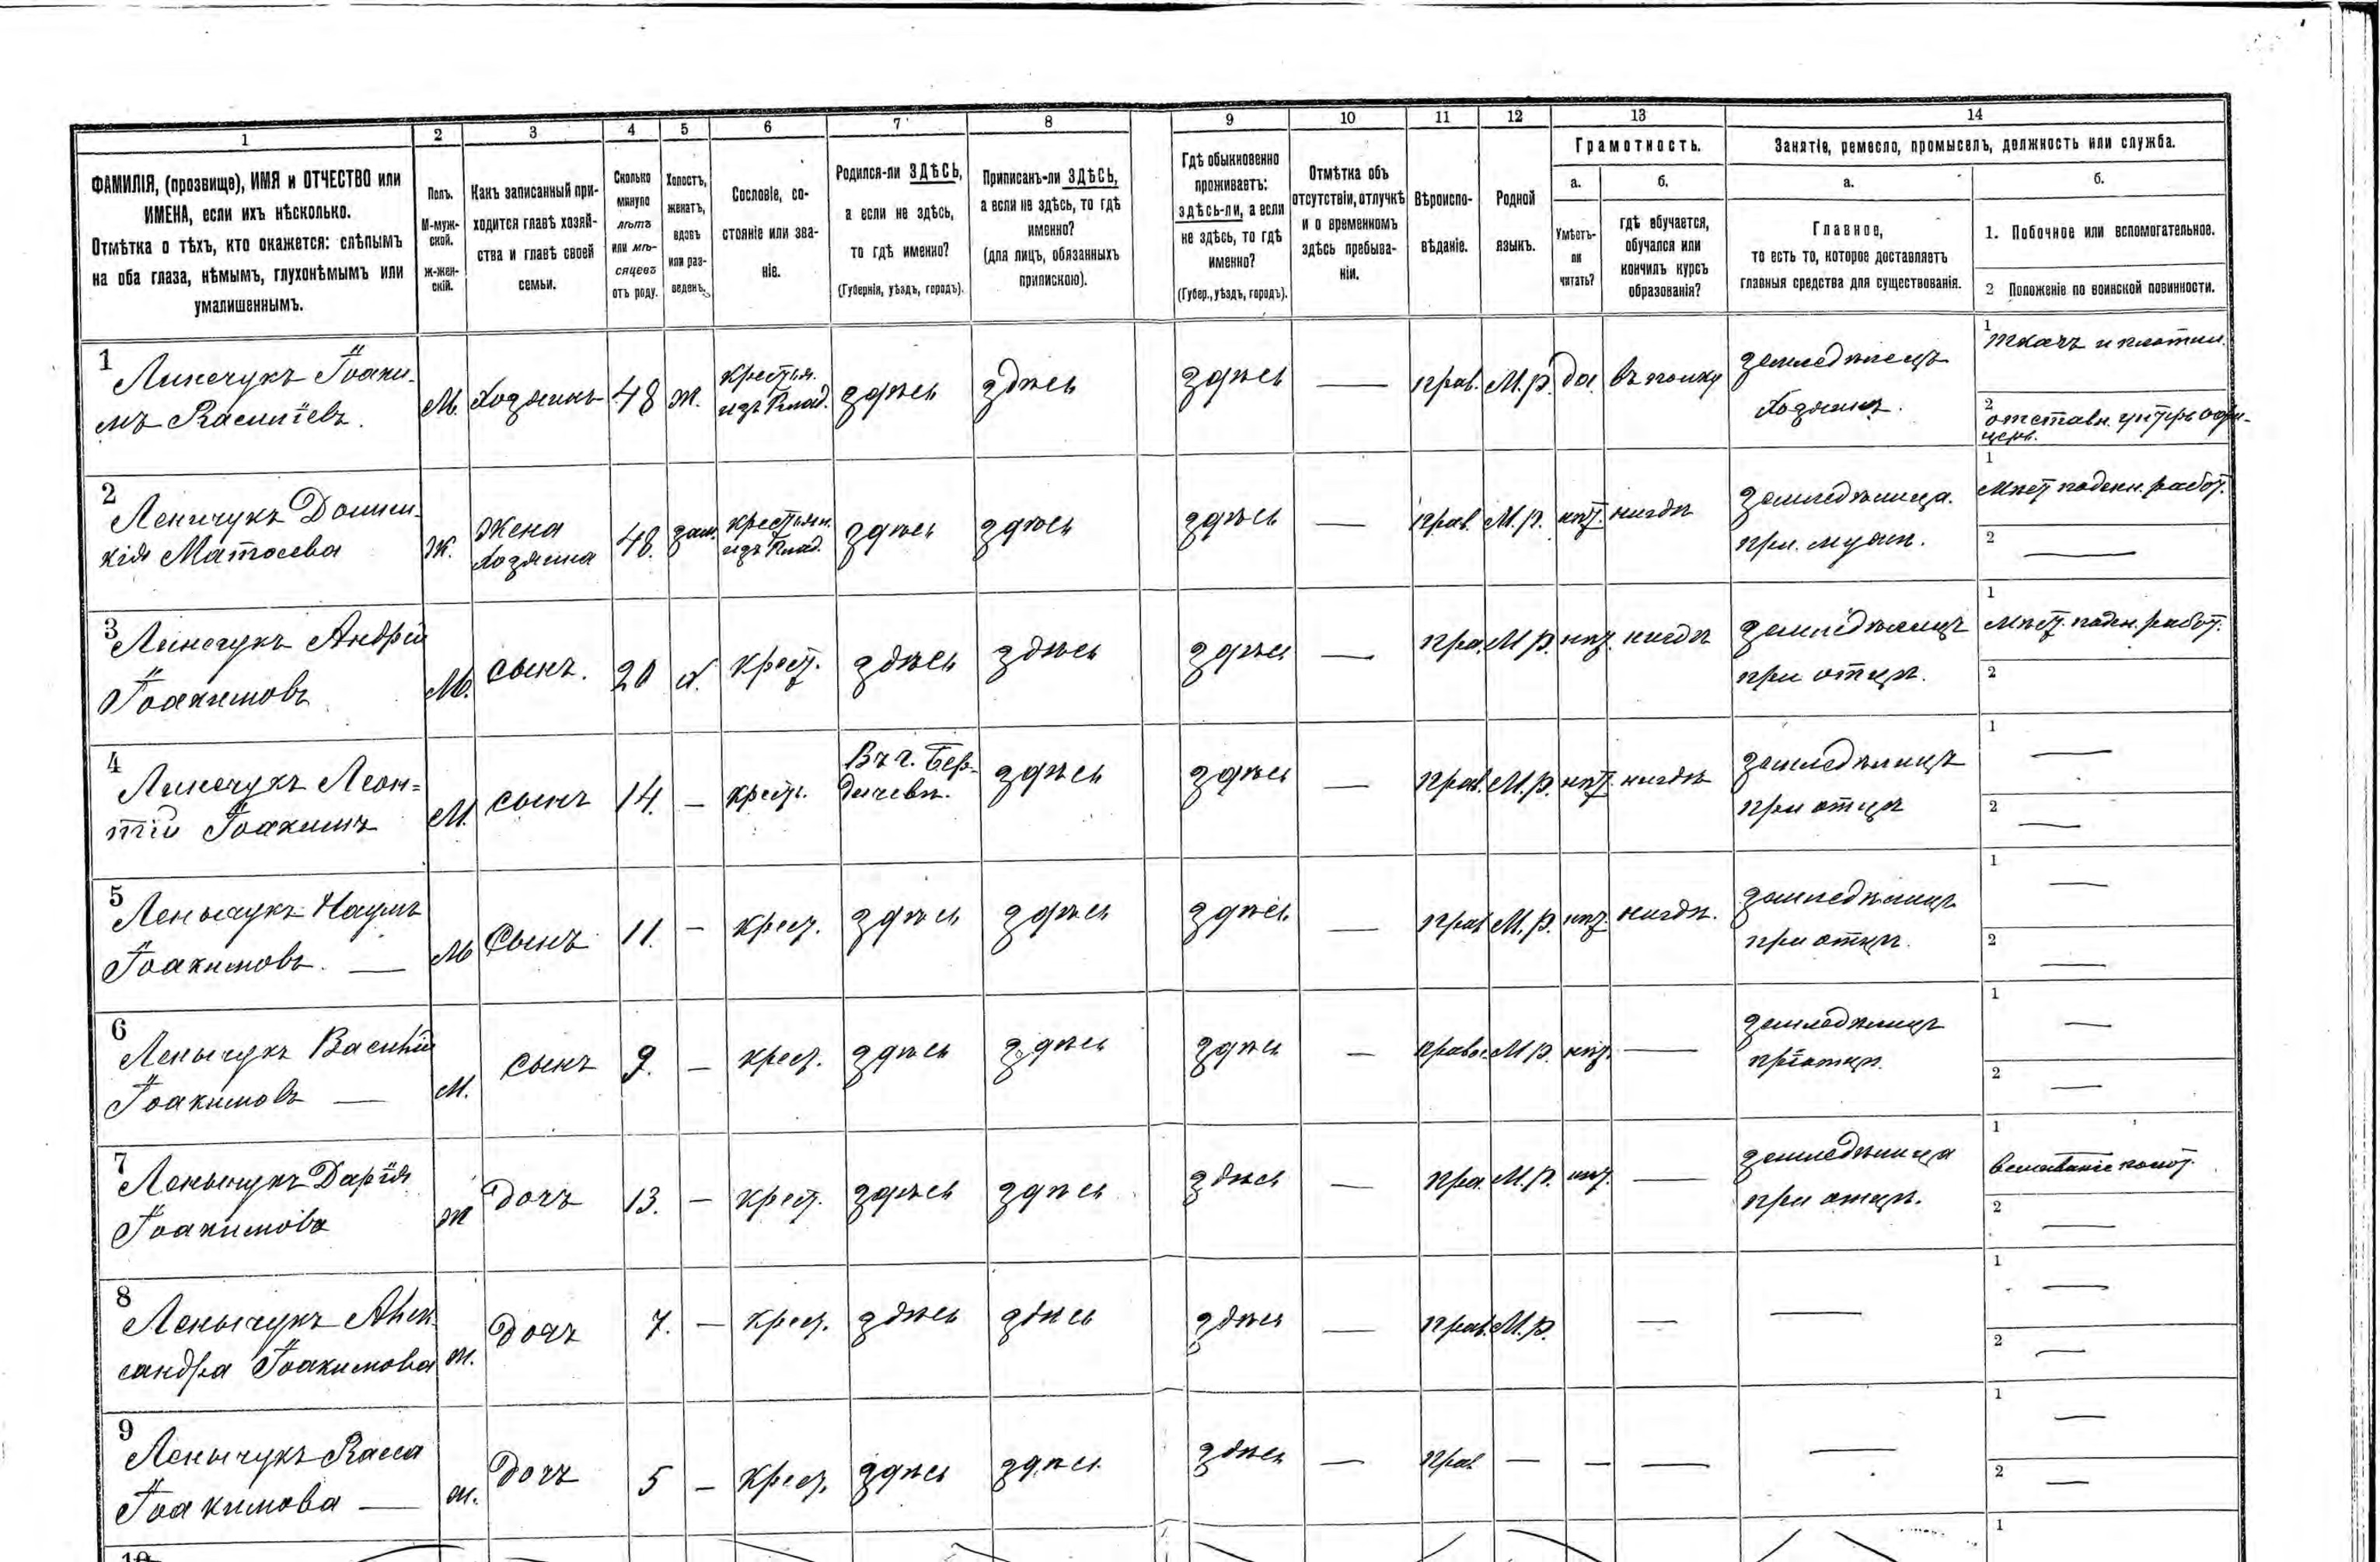 1 2 3 4 5 6 7 8 9 10 11 12 13 14
ФАМИЛІЯ, (прозвище), ИМЯ и ОТЧЕСТВО или
ИМЕНА, если ихъ нѣсколько.
Отмѣтка о тѣхъ, кто окажется: слѣпымъ
на оба глаза, нѣмымъ, глухонѣмымъ или
умалишеннымъ.
Полъ.
М-муж-
ской.
Ж-жен-
скій.
Какъ записанный при-
ходится главѣ хозяй-
ства и главѣ своей
семьи.
Сколько
минуло
лѣтъ
или мѣ-
сяцевъ
отъ роду.
Холостъ,
женатъ,
вдовъ
или раз-
веденъ.
Сословіе, со-
стояніе или зва-
ніе.
Родился-ли ЗДѢСЬ,
а если не здѣсь,
то гдѣ именно?
(Губернія, уѣздъ, городъ).
Приписанъ-ли ЗДѢСЬ,
а если не здѣсь, то гдѣ
именно?
(для лицъ, обязанныхъ
припискою).
Гдѣ обыкновенно
проживаетъ:
здѣсь-ли, а если
не здѣсь, то гдѣ
именно?
(Губер., уѣздъ, городъ).
Отмѣтка объ
отсутствіи, отлучкѣ
и о временномъ
здѣсь пребыва-
ніи.
Вѣроиспо-
вѣданіе.
Родной
языкъ.
Грамотность.
а.
Умѣетъ-
ли
читать?
б.
гдѣ обучается,
обучался или
кончилъ курсъ
образованія?
Занятіе, ремесло, промыселъ, должность или служба.
а.
Главное,
то есть то, которое доставляетъ
главныя средства для существованія.
б.
1. Побочное или вспомогательное.
2 Положеніе по воинской повинности.
1
Линчукъ Іоаки-
мъ Василіевъ.
М. Хозяинъ 48 ж.
Крестья.
изъ Влад.
здѣсь здѣсь здѣсь — прав. М.р. да. въ полку
земледѣлецъ
Хозяинъ.
1
ткачъ и плотни.
2
отставн. унтеръ офи-
церъ.
2
Леничукъ Домни-
кія Матѳеева
Ж.
Жена
Хозяина
48. зам.
крестьян.
изъ Влад.
здѣсь здѣсь здѣсь — прав. М.р. нѣт. нигдѣ
земледѣлица.
при. мужѣ.
1
Мѣст поденн. работ.
2 —
3
Линчукъ Андрій
Іоакимовъ
М. сынъ. 20 х. крест. здѣсь здѣсь здѣсь — пра. М.р. нѣт. нигдѣ
земледѣлицъ
при отцѣ.
1
Мѣст. поден. работ.
2
4
Линчукъ Леон=
тій Іоакимъ
М. сынъ 14. — крест.
Въ г. Бер-
дичевѣ.
здѣсь здѣсь — прав. М.р. нѣт. нигдѣ
земледѣлицъ
при отцѣ
1 —
2 —
5
Ленычукъ Наумъ
Іоакимовъ. —
М Сынъ 11. — крест. здѣсь здѣсь здѣсь — прав М.р. нѣт. нигдѣ.
земледѣлицъ
при отцѣ.
1 —
2 —
6
Ленычукъ Василій
Іоакимовъ —
М. сынъ 9. — крест. здѣсь здѣсь здѣсь — право. М.р. нѣт. —
земледѣлицъ
при отцѣ.
1 —
2 —
7
Ленычукъ Дарія
Іоакимова
ж Дочъ 13. — крест. здѣсь здѣсь здѣсь — пра. М.р. нѣт. —
земледѣлица
при отцѣ.
1
2 —
8
Ленычукъ Алек-
сандра Іоакимова
ж. Дочъ 7. — крест. здѣсь здѣсь здѣсь — прав. М.р. — —
1 —
2 —
9
Ленычукъ Васса
Іоакимова —
ж. Дочъ 5 — крест. здѣсь здѣсь здѣсь — прав — — — —
1 —
2 —
10
1